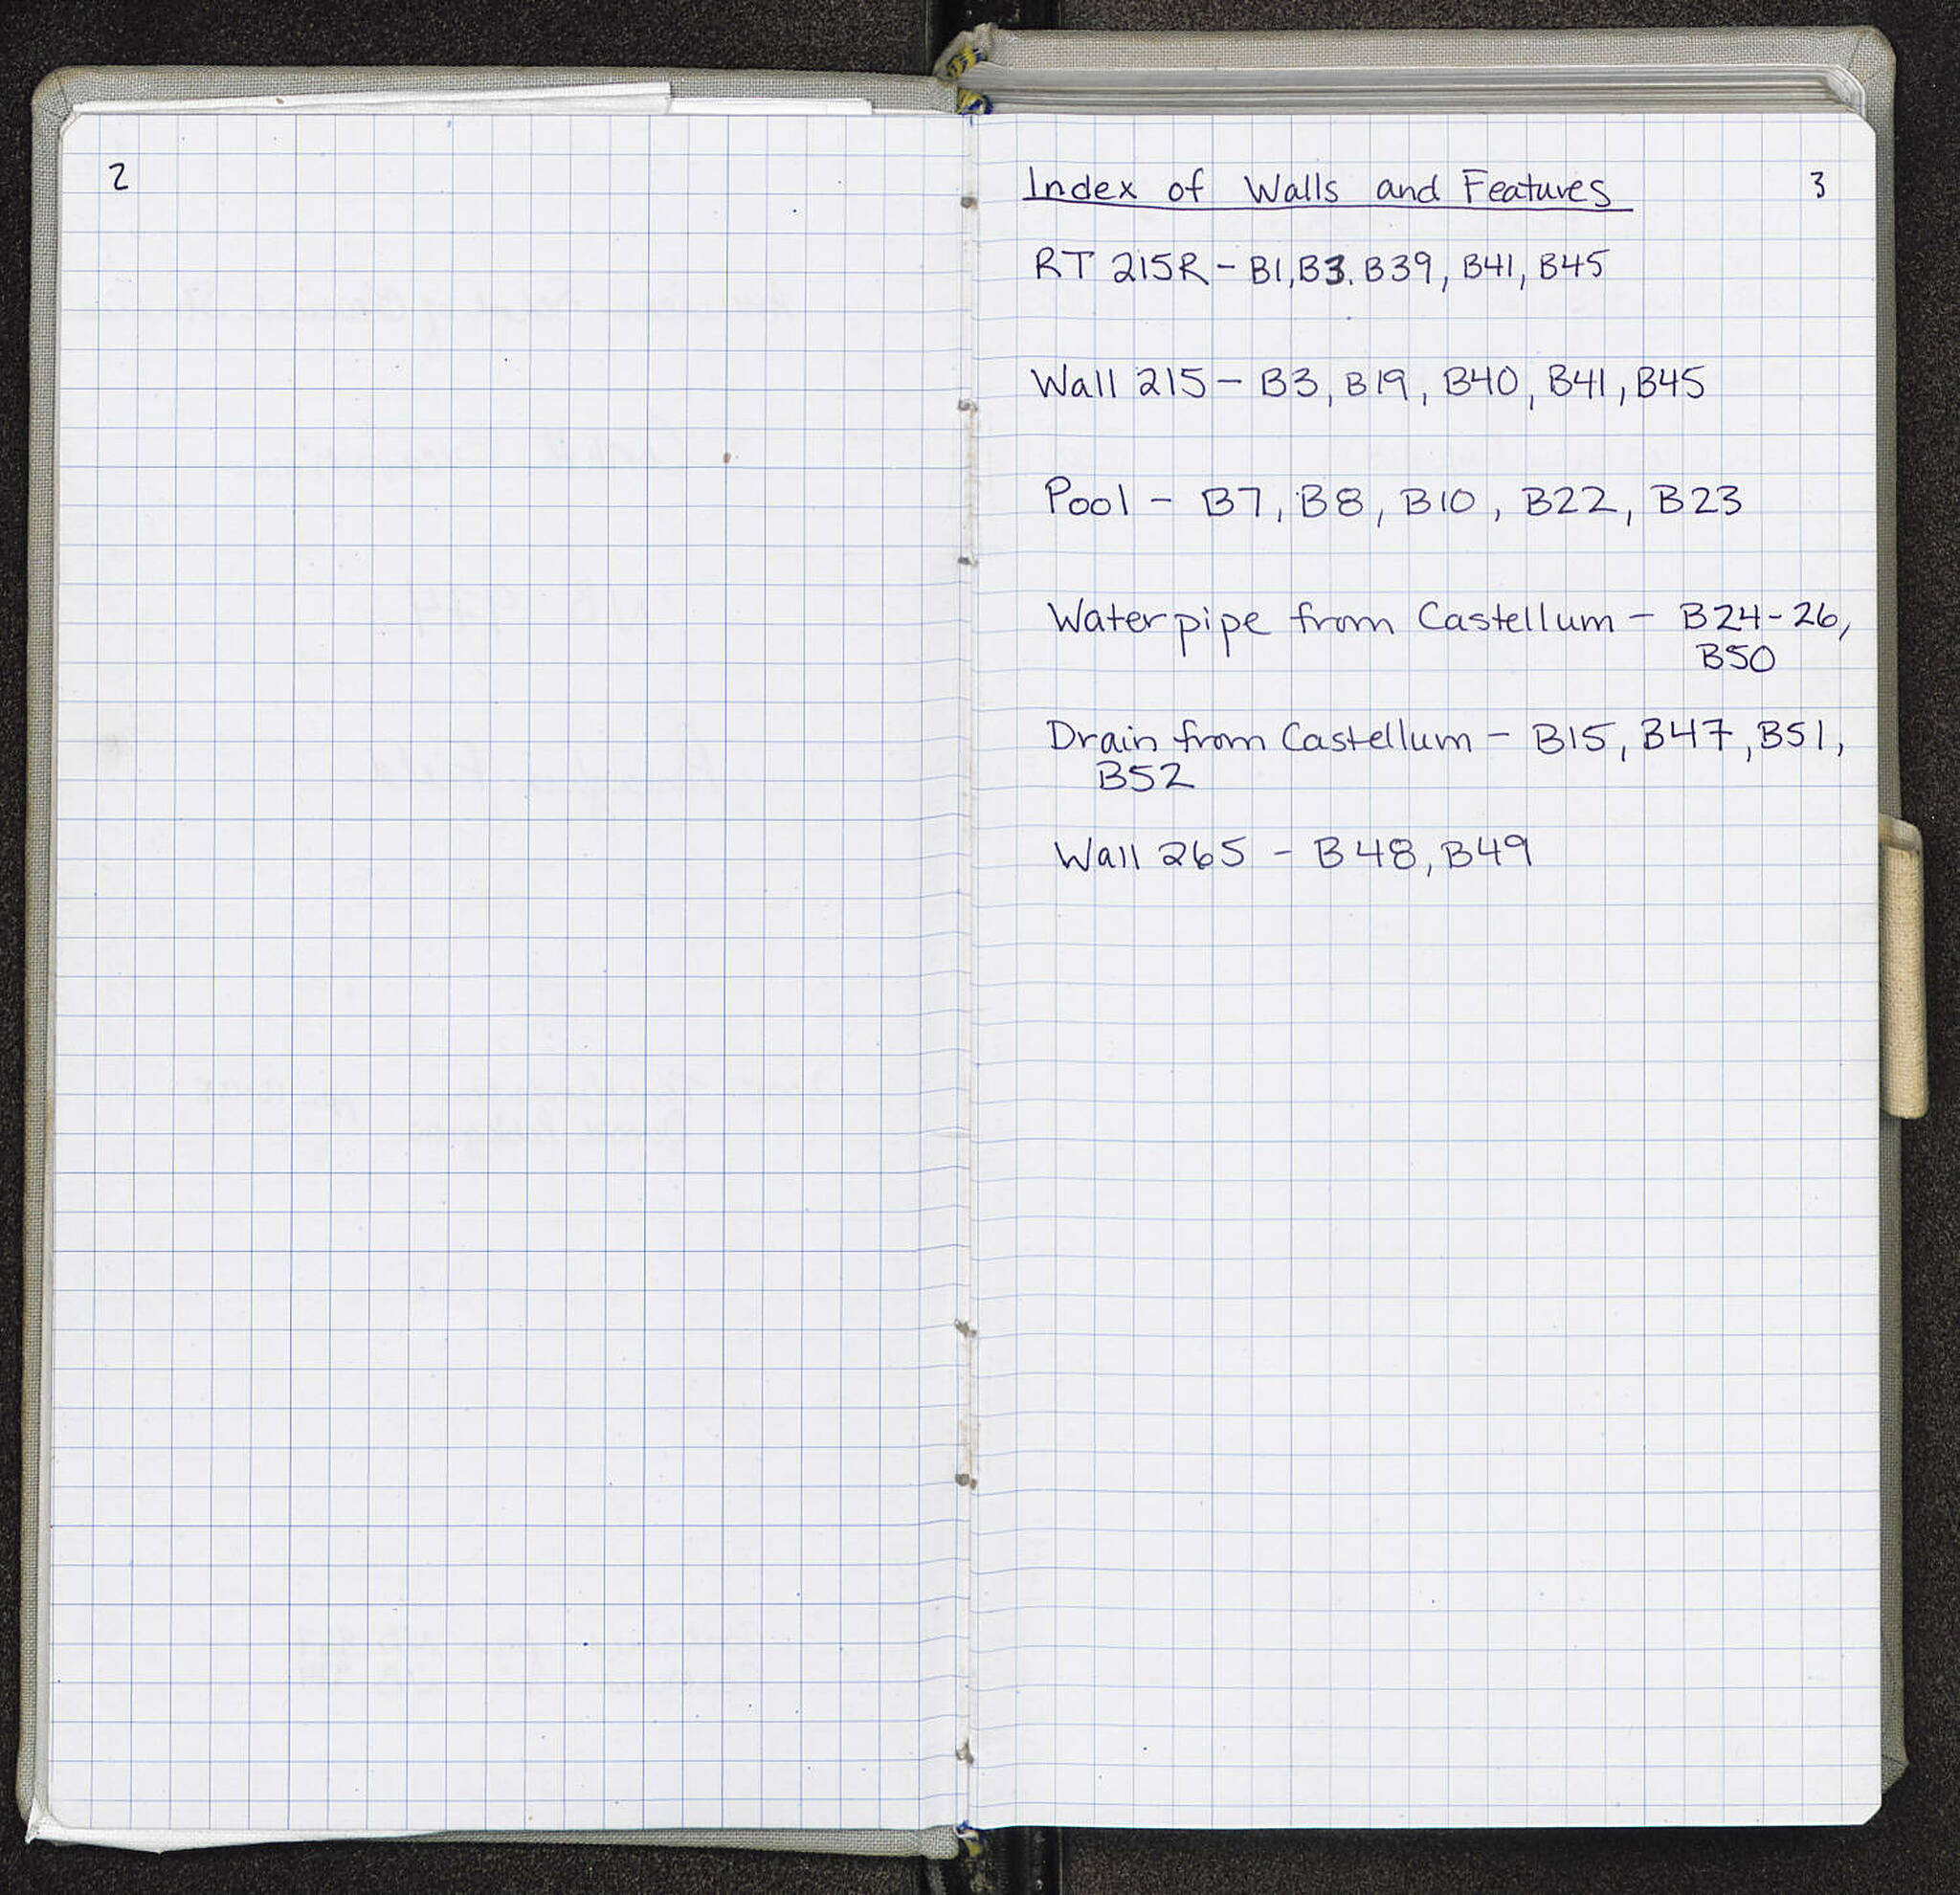 2
Index of Walls and Features 3
RT 215R - B1, B3. B39, B41, B45
Wall 215 - B3, B19, B40, B41, B45
Pool - B7, B8, B10, B22, B23
Waterpipe from Castellum - B24-26,
B50
Drain from Castellum - B15, B47, B51,
B52
Wall 265 - B48, B49